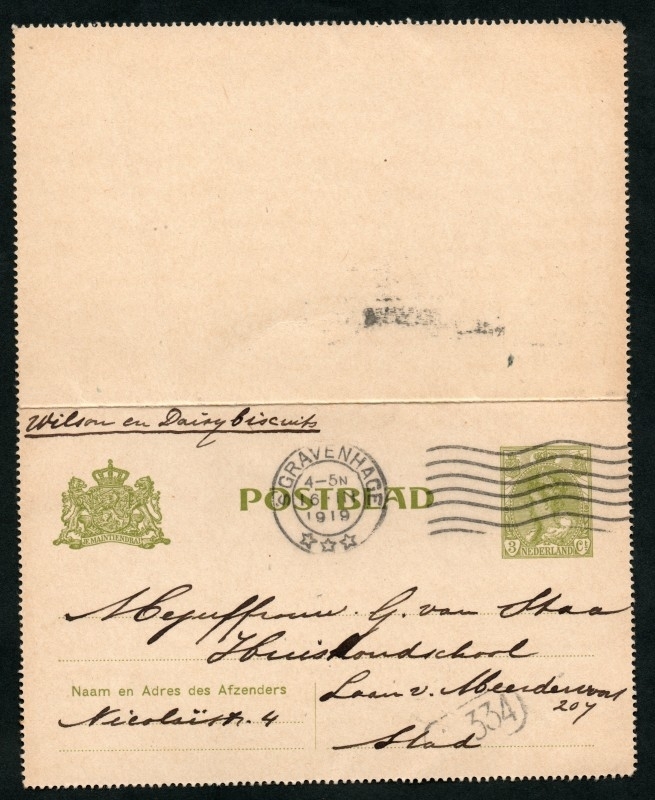 Wilson en Daisy biscuits
'S GRAVENHAGE
4-5N
1919
POSTBLAD
JE MAINTIENDRAI
3 NEDERLAND Ct
Mejuffrouw G. van Staa
Huishoudschool
Laan v. Meerdervoort
207
Stad
Naam en Adres des Afzenders
Nicolaïstr. 4
334